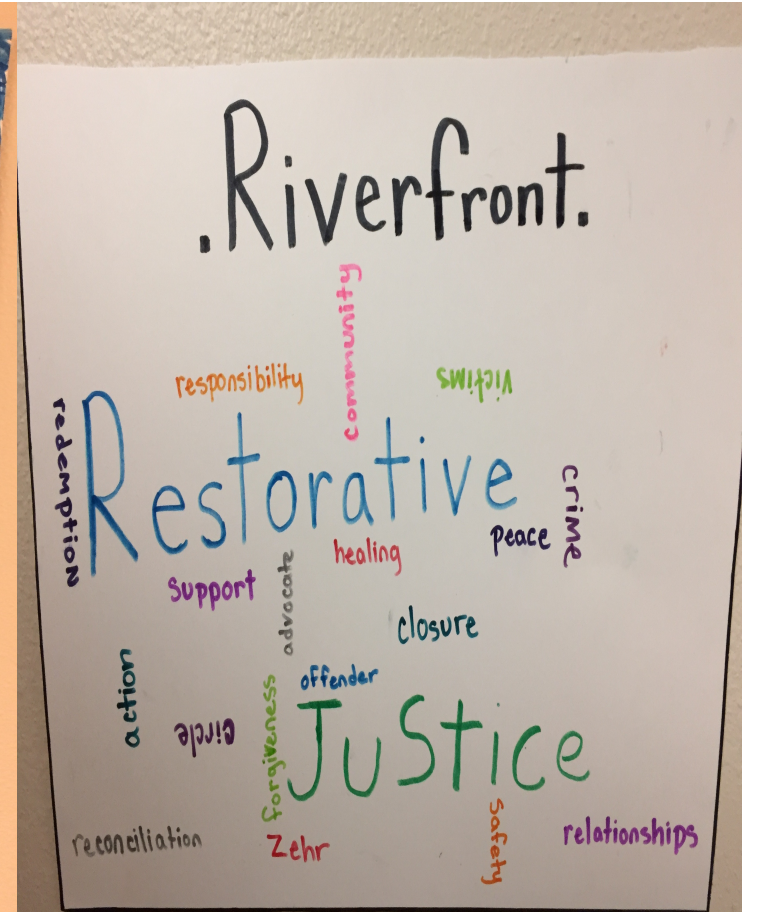 .Riverfront.
community
responsibility
victims
redemption
Restorative
crime
peace
healing
support
advocate
closure
action
offender
circle
forgiveness
JuSticE
reconciliation
Zehr
safety
relationships